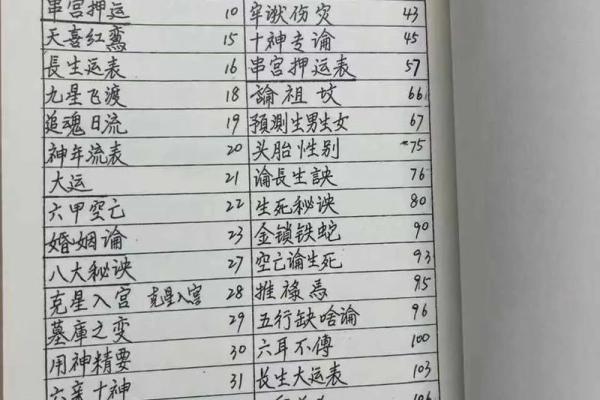 串宫押运 10 牢狱伤灾 43
天喜红鸾 15 十神专论 45
長生运表 16 串宫押运表 57
九星飞渡 18 論祖坟 66
追魂日流 19 預測生男生女 67
神年流表 20 头胎性别 75
大运 21 论長生訣 76
六甲空亡 22 生死秘诀 80
婚姻論 23 金锁铁蛇 90
八大秘诀 27 空亡论生死 93
克星入宫 克星入宫 28 推禄馬 95
墓庫之变 29 五行缺啥论 96
用神精要 30 六耳不傳 100
六亲十神 31 長生大运表 103